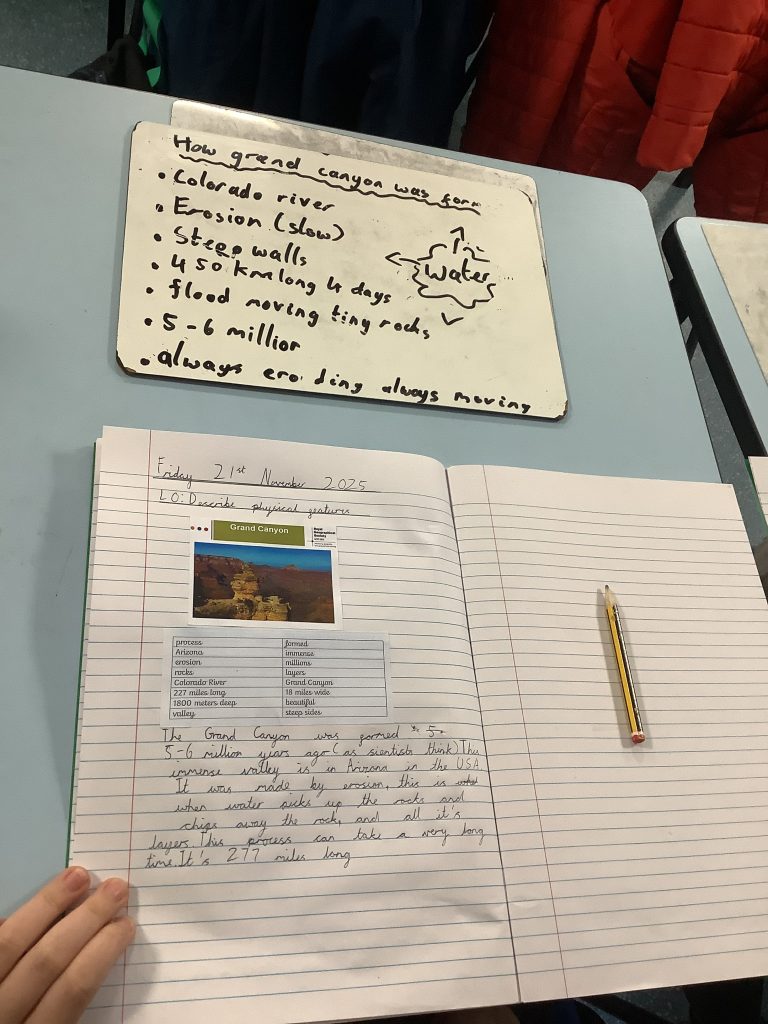 How grand canyon was form
• Colorado river
• Erosion (slow)
• Steep walls
• 450 km long 4 days
• flood moving tiny rocks
• 5-6 million
• always eroding always moving
water
Friday 21st November 2025
LO: Describe physical features
Grand Canyon
Royal
Geographical
Society
process formed
Arizona immense
erosion millions
rocks layers
Colorado River Grand Canyon
227 miles long 18 miles wide
1800 meters deep beautiful
valley steep sides
The Grand Canyon was formed 5-
5-6 million years ago (as sientists think) This
immense valley is in Arizona in the USA
It was made by erosion, this is
when water picks up the rocks and
chips away the rock, and all it's
layers. This process can take a very long
time. It's 277 miles long